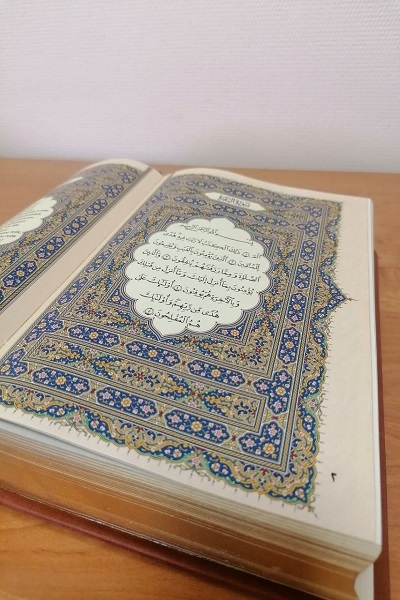 سُورَةُ البَقَرَةِ
بِسْمِ اللَّهِ الرَّحْمَٰنِ الرَّحِيمِ
الٓمٓ ۝١ ذَٰلِكَ الْكِتَٰبُ لَا رَيْبَ فِيهِ هُدًى
لِّلْمُتَّقِينَ ۝٢ الَّذِينَ يُؤْمِنُونَ بِالْغَيْبِ وَيُقِيمُونَ
الصَّلَوٰةَ وَمِمَّا رَزَقْنَٰهُمْ يُنفِقُونَ ۝٣ وَالَّذِينَ
يُؤْمِنُونَ بِمَآ أُنزِلَ إِلَيْكَ وَمَآ أُنزِلَ مِن قَبْلِكَ
وَبِالْءَاخِرَةِ هُمْ يُوقِنُونَ ۝٤ أُو۟لَٰٓئِكَ عَلَىٰ
هُدًى مِّن رَّبِّهِمْ وَأُو۟لَٰٓئِكَ
هُمُ الْمُفْلِحُونَ ۝٥
٢